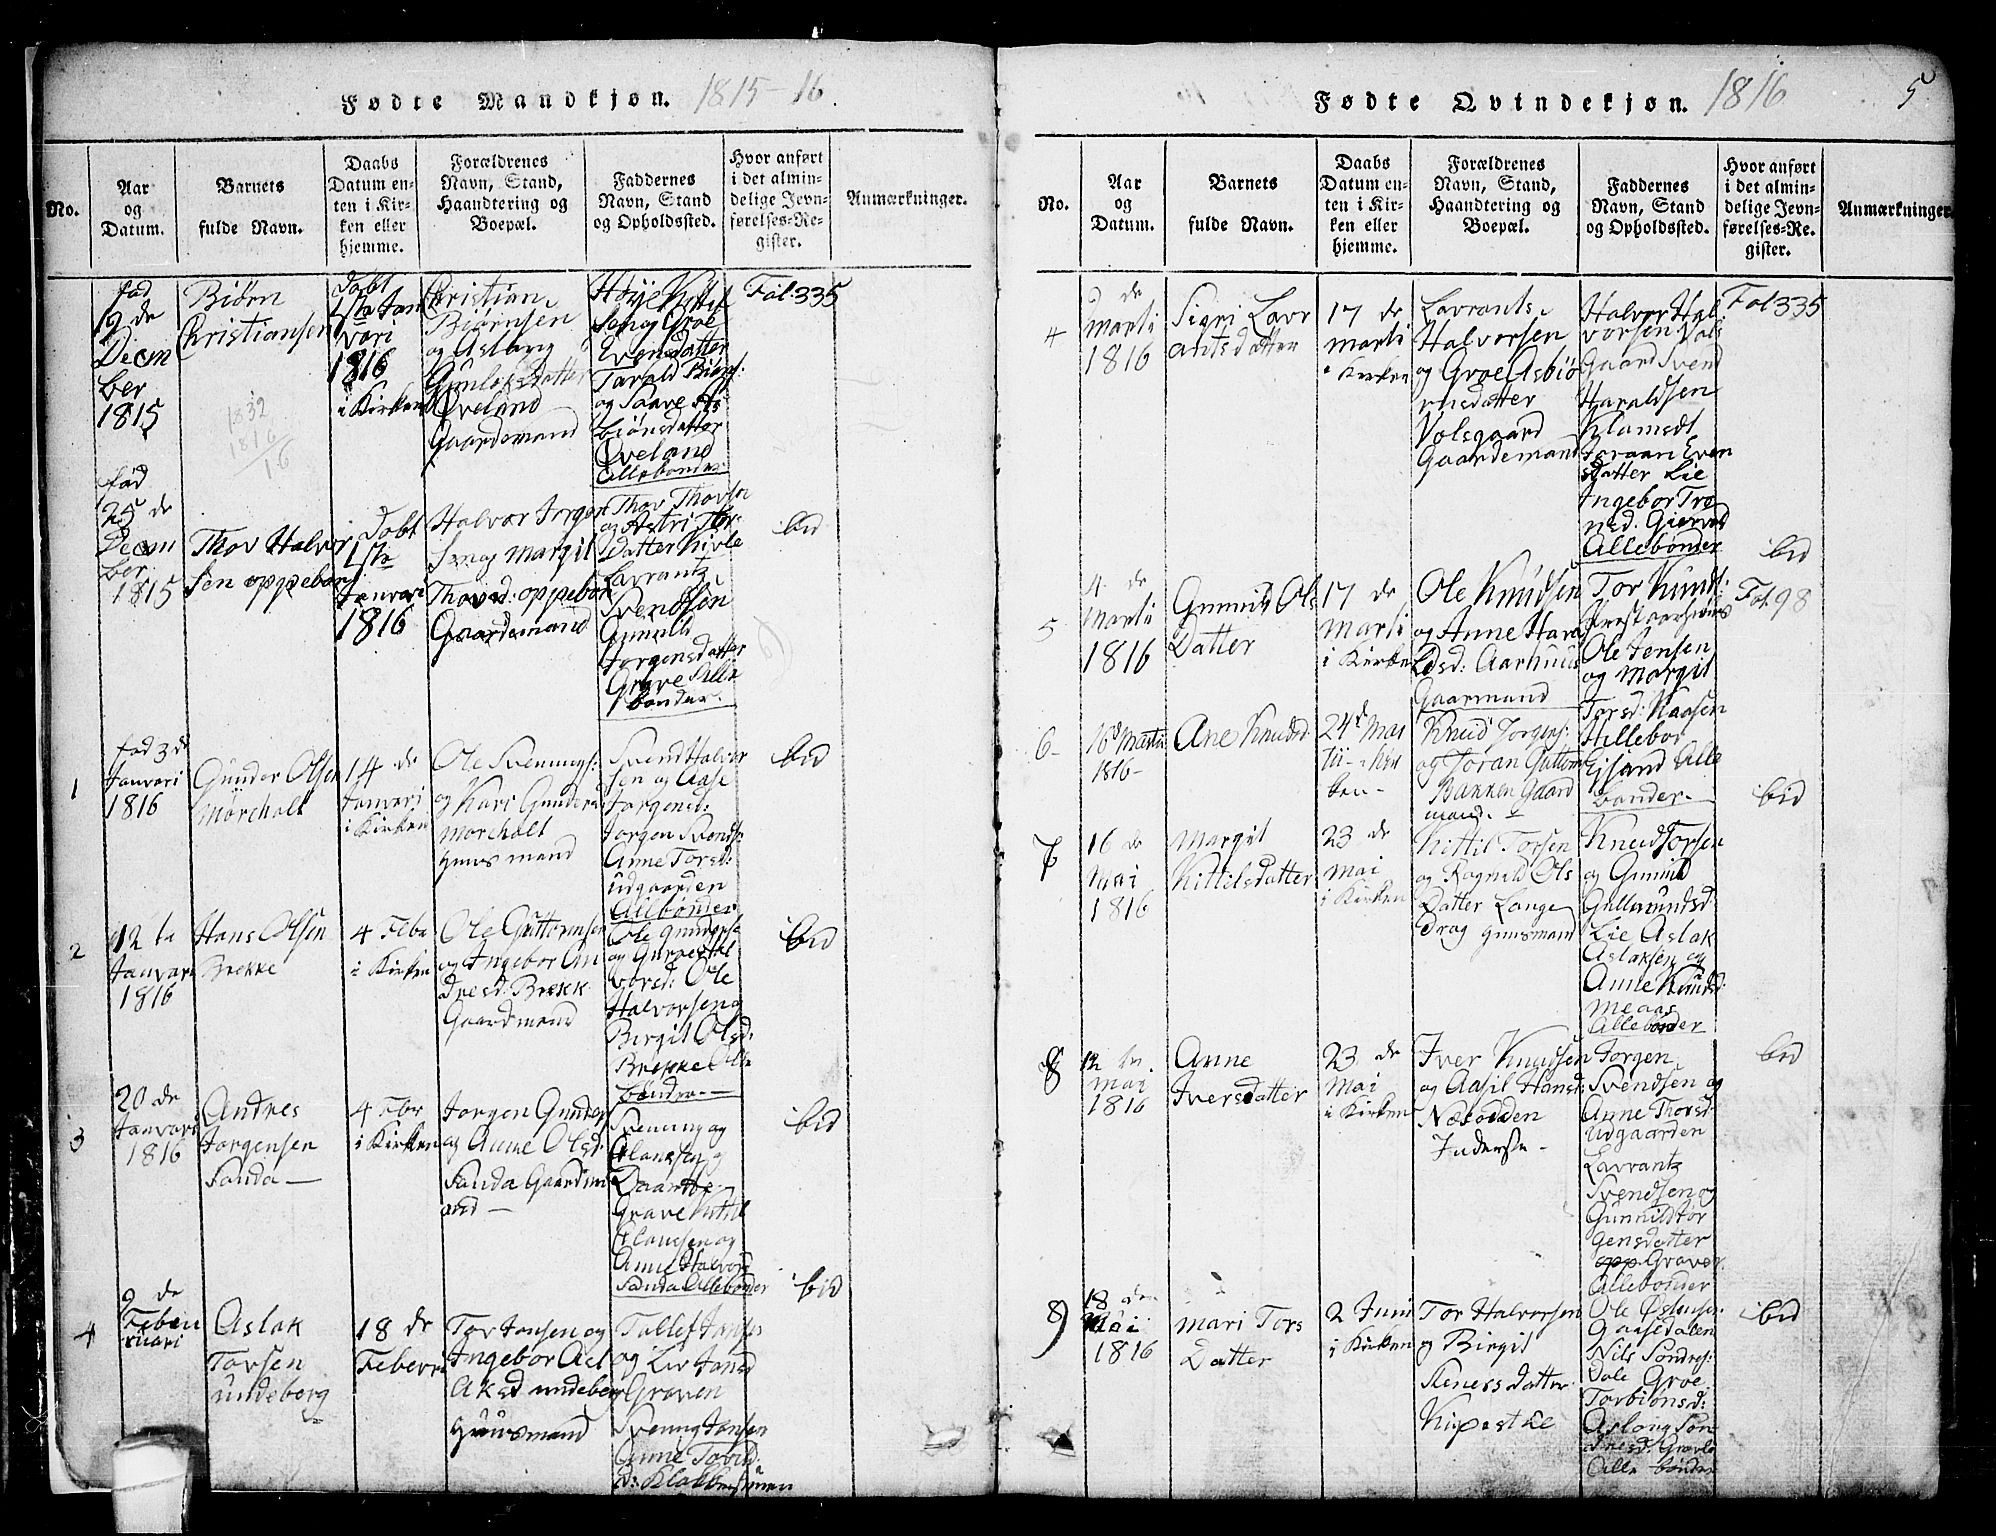 Fødte Mandkjøn. 1815-16.
No.
Aar
og
Datum.
Barnets
fulde Navn.
Daabs
Datum en-
ten i Kir-
ken eller
hjemme.
Forældrenes
Navn, Stand,
Haandtering og
Boepæl.
Faddernes
Navn, Stand
og Opholdssted.
Hvor anført
i det almin-
delige Jevn-
førelses-Re-
gister.
Anmærkninger.
fød
19 de
Decm
ber
1815
Biørn
Christiansen
Døbt
1ste Jan
vari
1816
i Kirken
Christian
Biørnsen
og Aslaug
Gunleksdatter
Øveland
Gaardemand
Evensdatter
Tarald Biørns:
og Saave As
biønsdatter
Øveland
Allebønder
Fol: 335
1832
1816
16
fød
25 de
Decm
ber
1815
Thov Halvor
sen oppebøen
Døbt
1ste
Janvari
1816
Halvor Jørgen
Sen og Margit
Thovsd: oppebøen
Gaardemand
Thov Thovsen
og Astri Thor:
datter Kivle
Lavrantz
Svendsen
Gunild
Jørgensdatter
Grave Alle
bønder.
ibid
1
fød 3 de
Janvari
1816
Gunder Olsen
Mørcholt
14 de
Janvari
i Kirken
Ole Svennings:
og Kari Gunders
Morcholt
Huusmand
Svend Halvor
sen og Aase
Jørgensd:
Jørgen Svends:
Anne Torsd:
Udgaarden
Allebønder
ibid
2
12 te
Janvari
1816
Hans Olsen
Brekke
4 Febr
i Kirken
Ole Guttormsen
og Ingebor An
dresd: Brekk
Gaardmand
Ole Gunders:
og Gurve Hal
vorsd: Ole
Halvorsen og
Birgit Olsd:
Brekke Alle
bønder.
ibid
3
20 de
Janvari
1816
Andres
Jørgensen
Sanda
4 Febr
i Kirken
Jørgen Gunders
og Anne Olsd:
Sanda Gaardm
and
Svening og
Grave Kittil
Clausen og
Anne Halvors
Sanda Allebønder
ibid
4
9 de
Febru
ruari
Aslak
Torsen
undeberg
18 de
Febevri
Tor Jansen og
Ingebor Asl
Aksd undeberg
Huusmand
Tallef Jansen
og Liv Jansd
Graven
Svenng Jansen
Anne Tovsd
ibid
Fødte Qvindekjøn. 1816
5
No.
Aar
og
Datum.
Barnets
fulde Navn.
Daabs
Datum en-
ten i Kir-
ken eller
hjemme.
Forældrenes
Navn, Stand,
Haandtering og
Boepæl.
Faddernes
Navn, Stand
og Opholdssted.
Hvor anført
i det almin-
delige Jevn-
førelses-Re-
gister.
Anmærkninger.
4
de
Marti
1816
Sigri Lavr
antsdatter
17 de
Marti
i Kirken
Lavrants
Halvorsen
og Groe Asbiø
rnsdatter
Volsgaard
Gaardemand
Halvor Hal
vorsen Vols
Gaard Svend
Haraldsen
Klomset
Joraan Even
sdatter Lie
Ingebor Tro
nsd: Gierved
Allebønder
Fol 335
ibid
5
4 de
Marti
1816
Gunnil Ols
Datter
17 de
Marti
i Kirken
Ole Knudsen
og Anne Hara
ldsd: Aarhuus
Gaarmand
Tor Knuds:
Prestaarhuus
Ole Jensen
og Margit
Torsd: Kaasen
Hillebor
Ejsand Alle
bønder.
Fol. 98
6
16d Marti
1816
Ane Knudsd
24d Mar
tii i Kir
ken
Knud Jørgens:
og Joran Guttorm
Bakken Gaard
mand.
ibid
7
16 de
Mai
1816
Margit
Kittilsdatter
23 de
Mai
i Kirken
Kittil Torsen
og Ragnild Ols
Datter Lange
Drag Huusmand
Knud Torsen
og Gunild
Gullmundsd
Lie Aslak
Aslaksen og
Anne Knudsd:
Meaas
Allebønder
8
12 te
Mai
1816
Anne
Iversdatter
23 de
Mai
i Kirken
Iver Knudsen
og Aasil Hansd:
Næsodden
Inderste
Jørgen
Svendsen og
Anne Thorsd
Udgaarden
Lavrantz
Svendsen og
Gunnild Jør
gensdatter
opp Graver
Allebønder
ibid
8)
18 de
Mai
1816
Mari Tors
Datter
2 Juni
i Kirken
Tor Halvorsen
og Birgit
Steners datter
Ole Østensen
Gaasedalen
Nils Sondres:
Dale Groe
Torbiønsd:
Aslaug Son
dresd: Gravle
Alle bønder
ibid